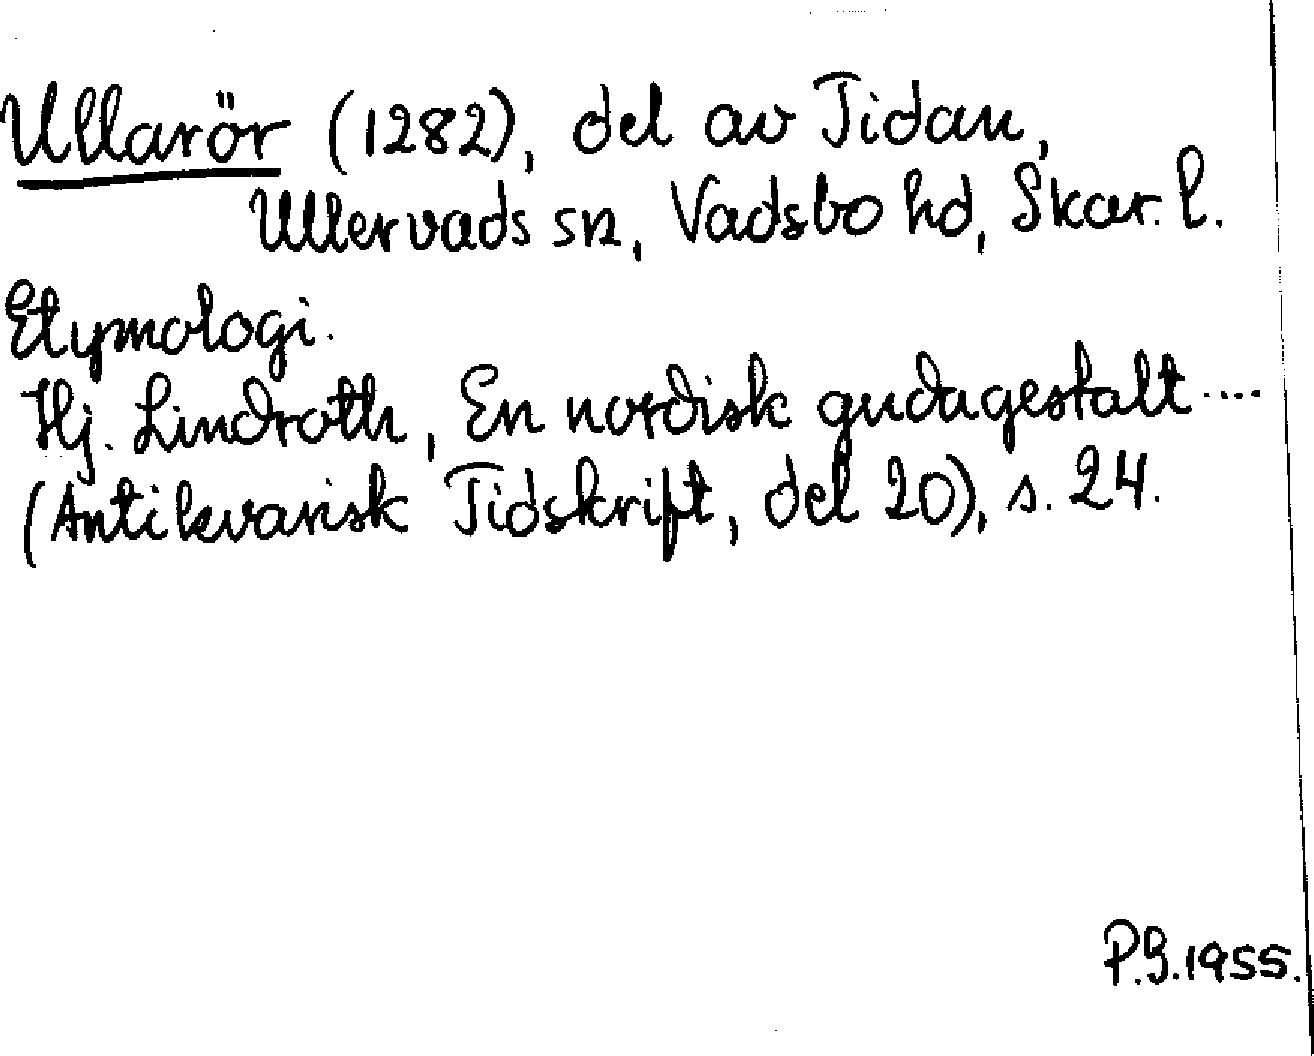 Ullarör (1282), del av Tidan,
Ullervads sn, Vadsbo hd, Skar. l.
Etymologi.
Hj. Lindroth, En nordisk gudagestalt ....
(Antikvarisk Tidskrift, del 20), s. 24.
P.G. 1955.